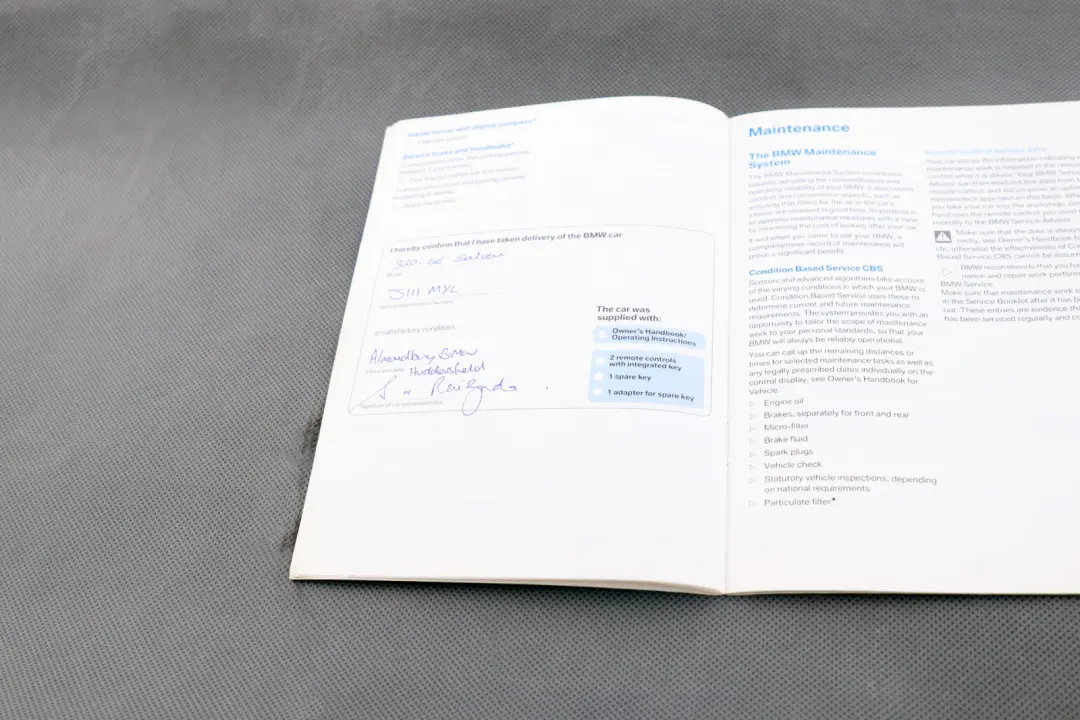 Inside mirror with digital compass*
Service brake and handbrake*
I hereby confirm that I have taken delivery of the BMW car
320 SE Saloon
Model
J111 MYL
in satisfactory condition.
Almondbury BMW
Huddersfield
Signature of car owner/operator
The car was
supplied with:
Owner's Handbook/
Operating Instructions
2 remote controls
with integrated key
1 spare key
1 adapter for spare key
Maintenance
The BMW Maintenance
System
The BMW Maintenance System contributes
towards upholding the roadworthiness and
operating reliability of your BMW. It also covers
comfort and convenience aspects, such as
ensuring that filters for the air in the car's
interior are renewed in good time. Its purpose is
to optimise maintenance measures with a view
to minimising the cost of looking after your car.
If and when you come to sell your BMW, a
comprehensive record of maintenance will
prove a significant benefit.
Condition Based Service CBS
Sensors and advanced algorithms take account
of the varying conditions in which your BMW is
used. Condition Based Service uses these to
determine current and future maintenance
requirements. The system provides you with an
opportunity to tailor the scope of maintenance
work to your personal standards, so that your
BMW will always be reliably operational.
You can call up the remaining distances or
times for selected maintenance tasks as well as
any legally prescribed dates individually on the
control display, see Owner's Handbook for
Vehicle.
▷ Engine oil
▷ Brakes, separately for front and rear
▷ Micro-filter
▷ Brake fluid
▷ Spark plugs
▷ Vehicle check
▷ Statutory vehicle inspections, depending
on national requirements
▷ Particulate filter*
Your car stores the information indicating
maintenance work is required in the remote
control while it is driven. Your BMW Service
Advisor can then read out this data from the
remote control, and will propose an optimum
maintenance approach on this basis. When
you take your car into the workshop,
hand over the remote control you used
recently to the BMW Service Advisor.
Make sure that the date is always
rectly, see Owner's Handbook for
cle, otherwise the effectiveness of
Based Service CBS cannot be assured
▷ BMW recommends that you
nance and repair work performed
BMW Service.
Make sure that maintenance work
in the Service Booklet after it has
out. These entries are evidence
has been serviced regularly and